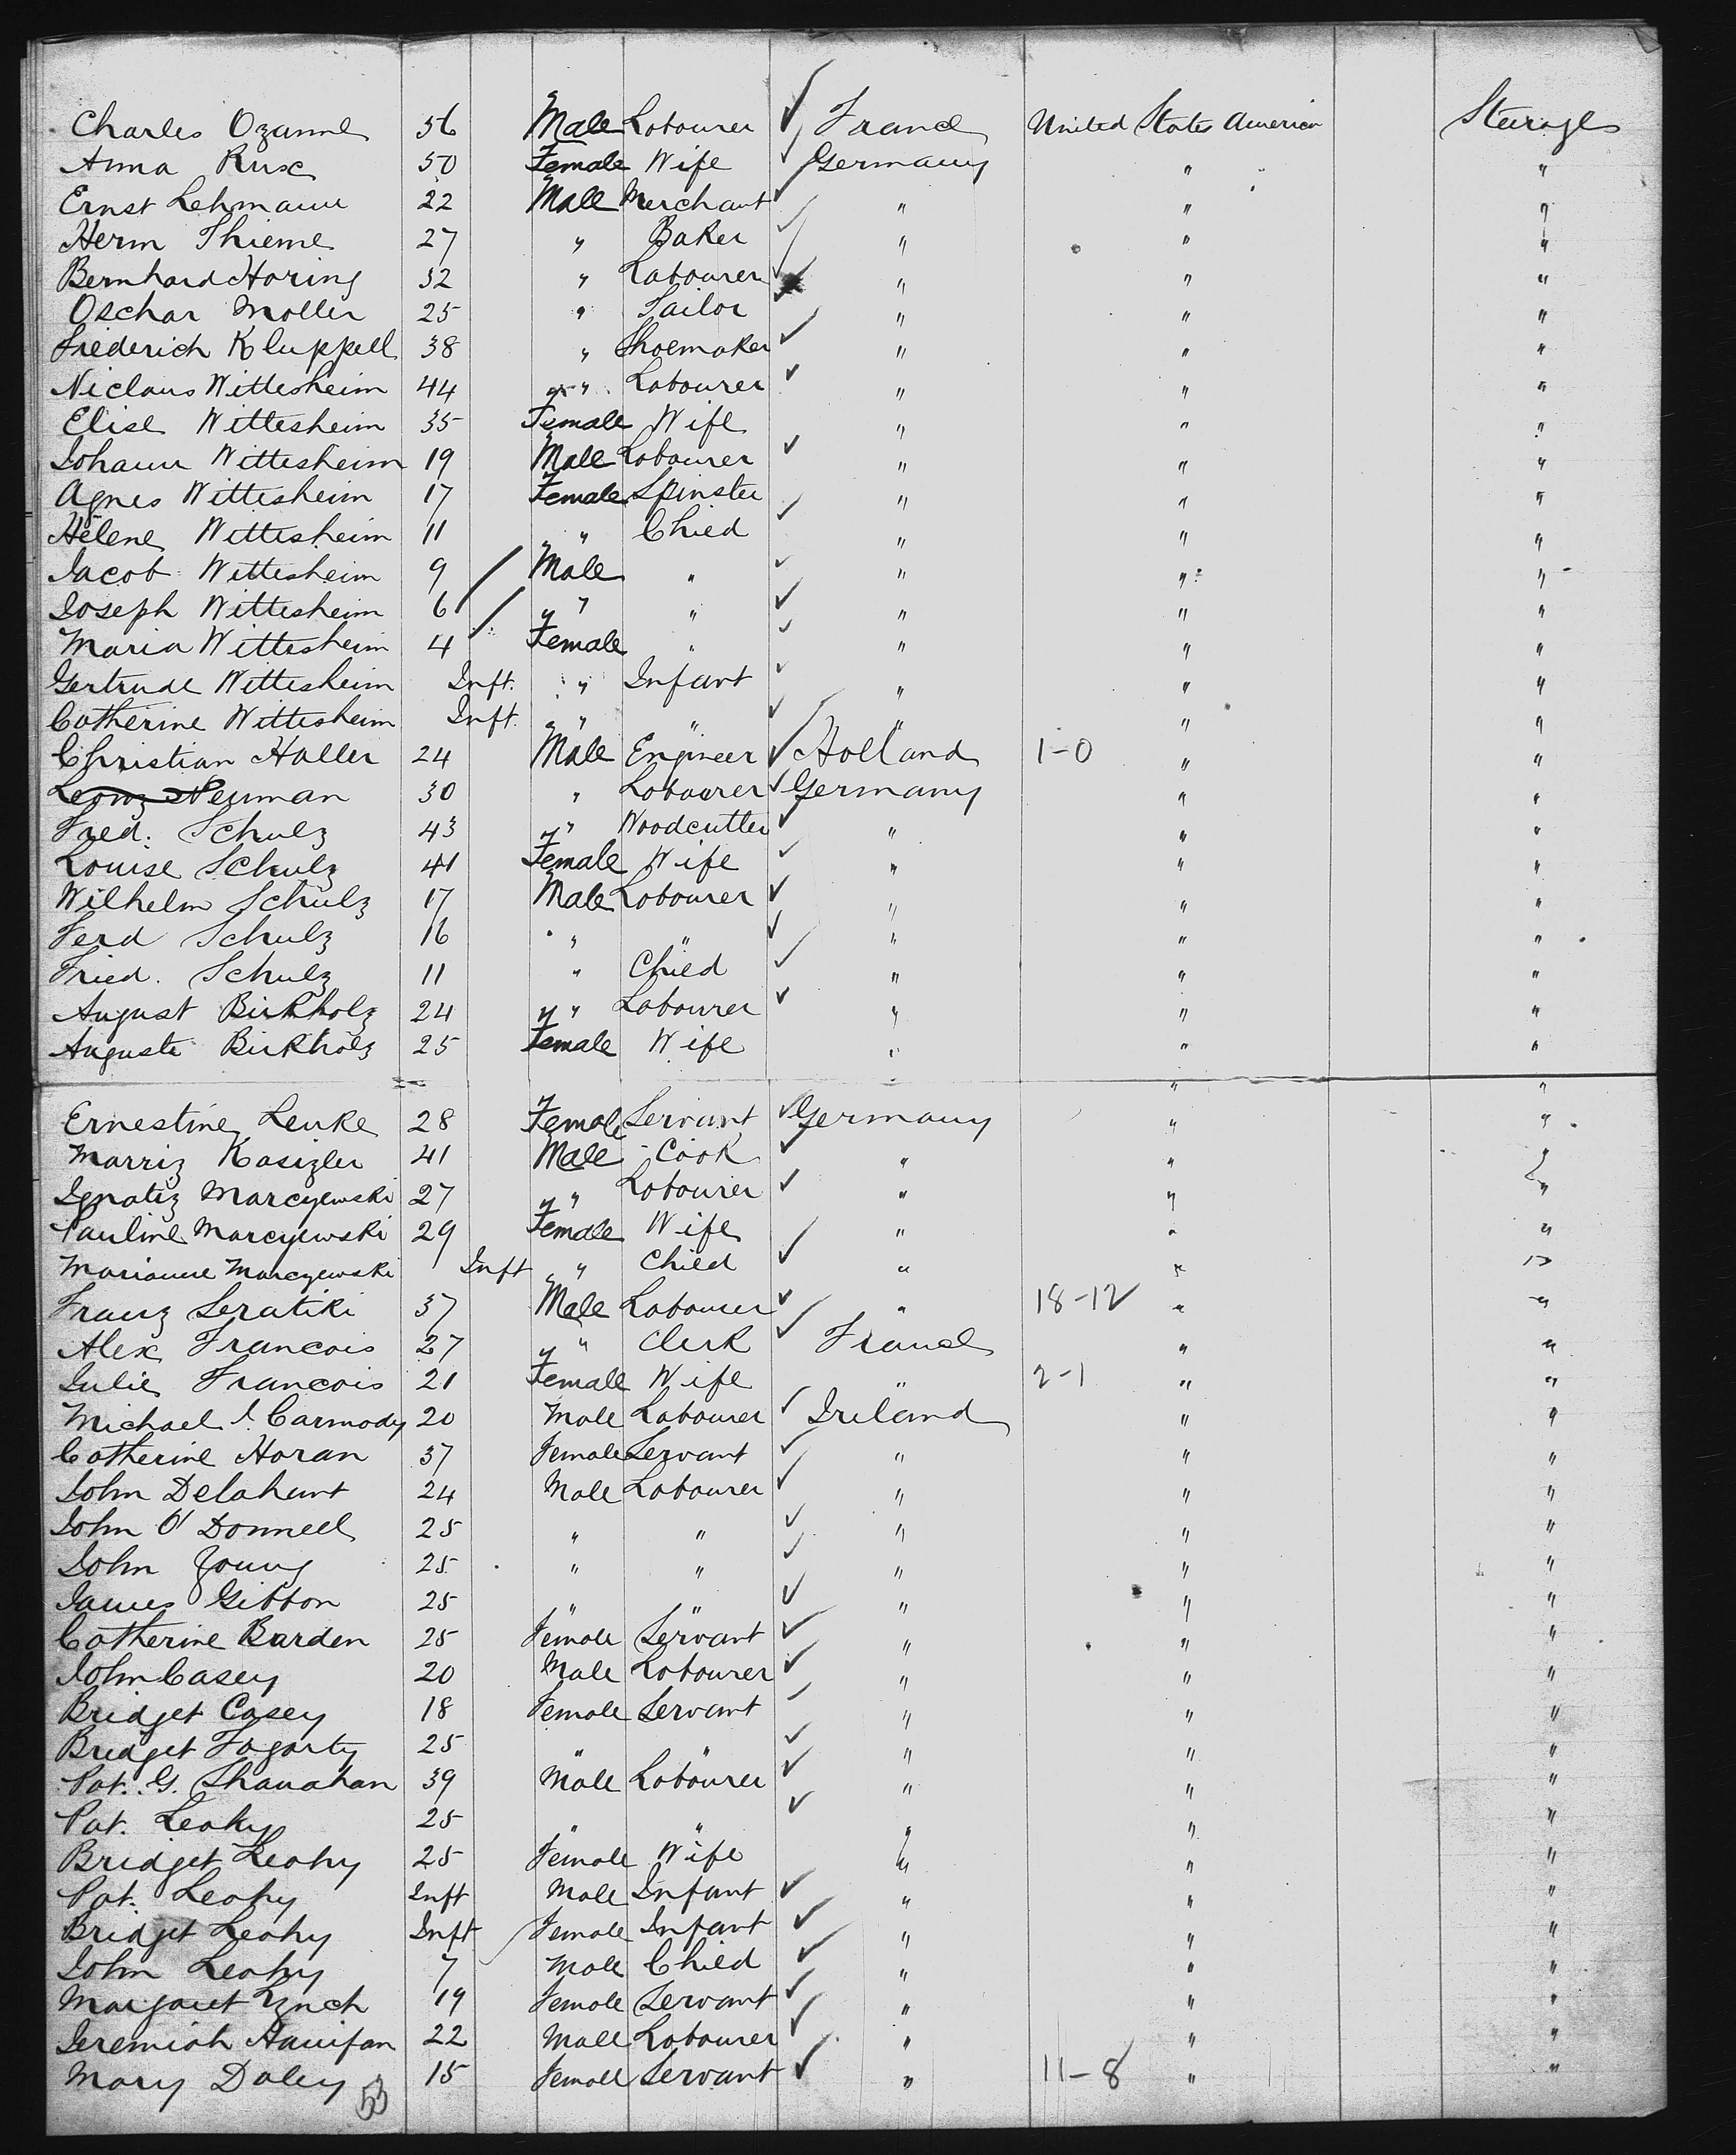 Charles Ozanne 56 Male Labourer ✓ France United States America Steerage
Anna Rux 50 Female Wife ✓ Germany " "
Ernst Lehmann 22 Male Merchant ✓ " " "
Herm Thieme 27 " Baker ✓ " " "
Bernhard Horing 32 " Labourer ✓ " " "
Oschar Moller 25 " Tailor ✓ " " "
Friederich Kluppell 38 " Shoemaker ✓ " " "
Niclaus Wittesheim 44 " Labourer ✓ " " "
Elise Wittesheim 35 Female Wife " " "
Johann Wittesheim 19 Male Labourer ✓ " " "
Agnes Wittesheim 17 Female Spinster " " "
Helene Wittesheim 11 " Child ✓ " " "
Jacob Wittesheim 9 Male " ✓ " " "
Joseph Wittesheim 6 " " ✓ " " "
Maria Wittesheim 4 Female " ✓ " " "
Gertrude Wittesheim Inft. " Infant ✓ " " "
Catherine Wittesheim Inft. " " ✓ " " "
Christian Haller 24 Male Engineer ✓ Holland 1-0 " "
Neuman 30 " Labourer ✓ Germany " "
Fred. Schulz 43 " Woodcutter ✓ " " "
Louise Schulz 41 Female Wife ✓ " " "
Wilhelm Schulz 17 Male Labourer ✓ " " "
Ferd Schulz 16 " " ✓ " " "
Fried. Schulz 11 " Child ✓ " " "
August Birkholz 24 " Labourer ✓ " " "
Auguste Birkholz 25 Female Wife " " "
" "
Ernestine Lenke 28 Female Servant ✓ Germany " "
Marriz Kasizler 41 Male Cook ✓ " " "
Ignatiz Marcyewski 27 " Labourer ✓ " " "
Pauline Marcyewski 29 Female Wife " " "
Marianne Marcyewski Inft " Child ✓ " " "
Franz Seratiki 37 Male Labourer ✓ " 18-12 " "
Alex Francois 27 " Clerk ✓ France " "
Julie Francois 21 Female Wife " 2-1 " "
Michael Carmody 20 Male Labourer ✓ Ireland " "
Catherine Horan 37 Female Servant ✓ " " "
John Delahunt 24 Male Labourer ✓ " " "
John O'Donnell 25 " " ✓ " " "
John Young 25 " " ✓ " " "
James Gibbon 25 " " ✓ " " "
Catherine Barden 25 Female Servant ✓ " " "
John Casey 20 Male Labourer ✓ " " "
Bridget Casey 18 Female Servant ✓ " " "
Bridget Fogarty 25 " " ✓ " " "
Pat. G. Shanahan 39 Male Labourer ✓ " " "
Pat. Leahy 25 " " ✓ " " "
Bridget Leahy 25 Female Wife " " "
Pat. Leahy Inft Male Infant ✓ " " "
Bridget Leahy Inft Female Infant ✓ " " "
John Leahy 7 Male Child ✓ " " "
Margaret Lynch 19 Female Servant ✓ " " "
Jeremiah Hanifan 22 Male Labourer ✓ " " "
Mary Daley 15 Female Servant ✓ " 11-8 " "
53